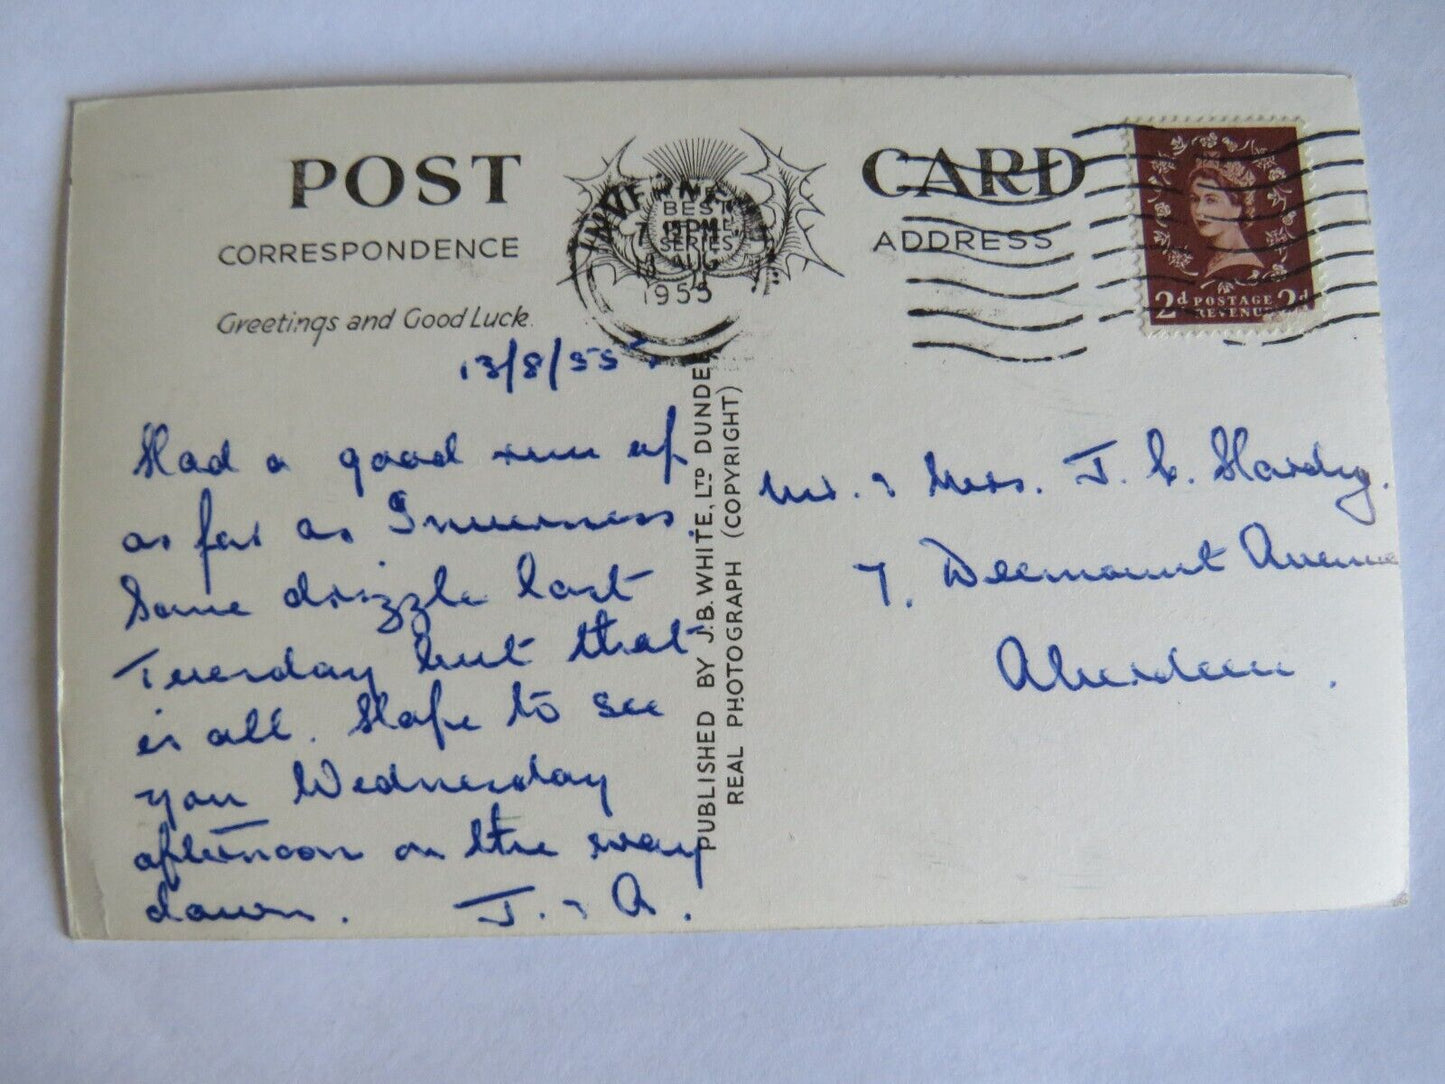 POST CARD
CORRESPONDENCE ADDRESS
BEST
SERIES
INVERNESS
AUG
1955
2d POSTAGE 2d
REVENUE
Greetings and Good Luck.
13/8/55
Had a good run up
as far as Inverness.
Some drizzle last
Tuesday but that
is all. Hope to see
you Wednesday
afternoon on the way
down. J. & A.
PUBLISHED BY J.B. WHITE, LTD DUNDEE
REAL PHOTOGRAPH (COPYRIGHT)
Mr. & Mrs. J. C. Hardy.
7, Deemount Avenue
Aberdeen.